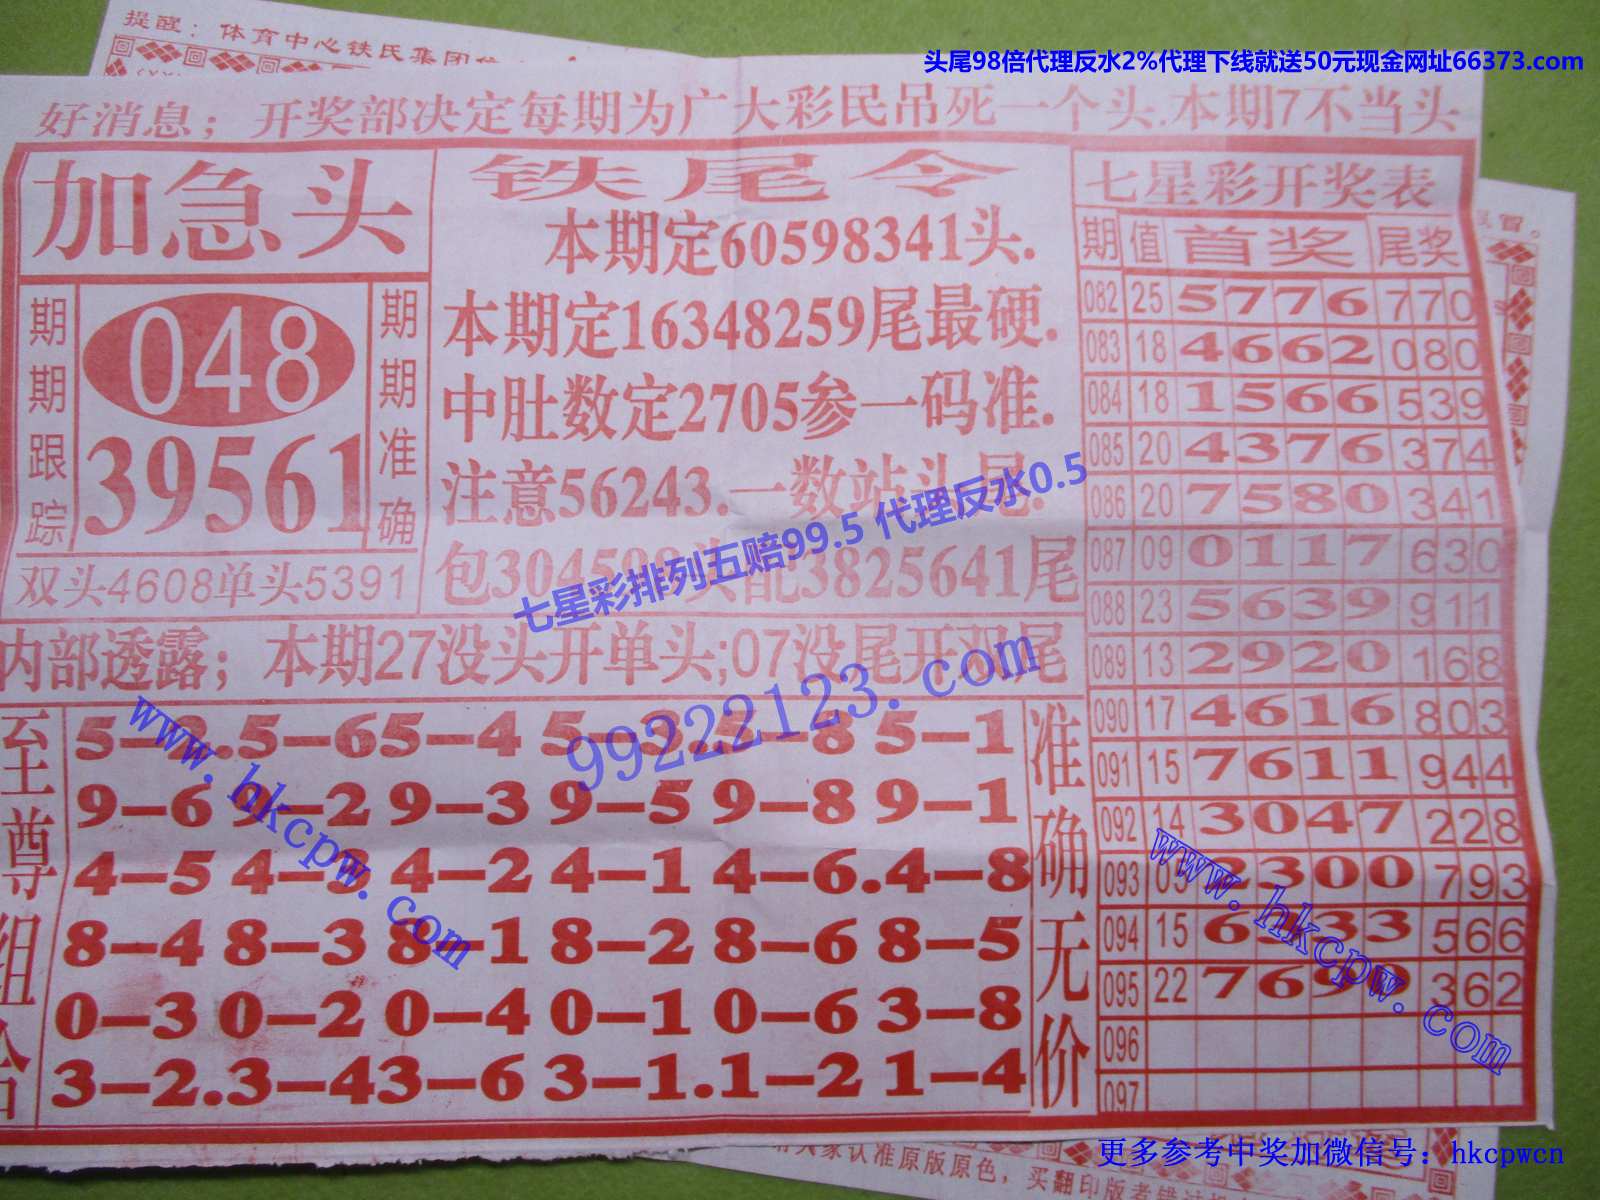 提醒：体育中心铁氏集团
头尾98倍代理反水2%代理下线就送50元现金网址66373.com
好消息；开奖部决定每期为广大彩民吊死一个头.本期7不当头
加急头
期期跟踪
048
39561
期期准确
双头4608单头5391
铁尾令
本期定60598341头.
本期定16348259尾最硬.
中肚数定2705参一码准.
注意56243.一数站头尾.
包304598头配3825641尾
七星彩排列五赔99.5 代理反水0.5
内部透露；本期27没头开单头;07没尾开双尾
99222123.com
www.hkcpw.com
至尊组合
5-3.5-65-4 5-3 2-8 5-1
9-6 9-2 9-3 9-5 9-8 9-1
4-5 4-3 4-2 4-1 4-6.4-8
8-4 8-3 8-1 8-2 8-6 8-5
0-3 0-2 0-4 0-1 0-6 3-8
3-2.3-43-6 3-1.1-2 1-4
准确无价
七星彩开奖表
期 值 首奖 尾奖
082 25 5776 770
083 18 4662 080
084 18 1566 539
085 20 4376 374
086 20 7580 341
087 09 0117 630
088 23 5639 911
089 13 2920 168
090 17 4616 803
091 15 7611 944
092 14 3047 228
093 05 2300 793
094 15 6 33 566
095 22 769 362
096
097
www.hkcpw.com
更多参考中奖加微信号：hkcpwcn
大家认准原版原色，买翻印版者错过